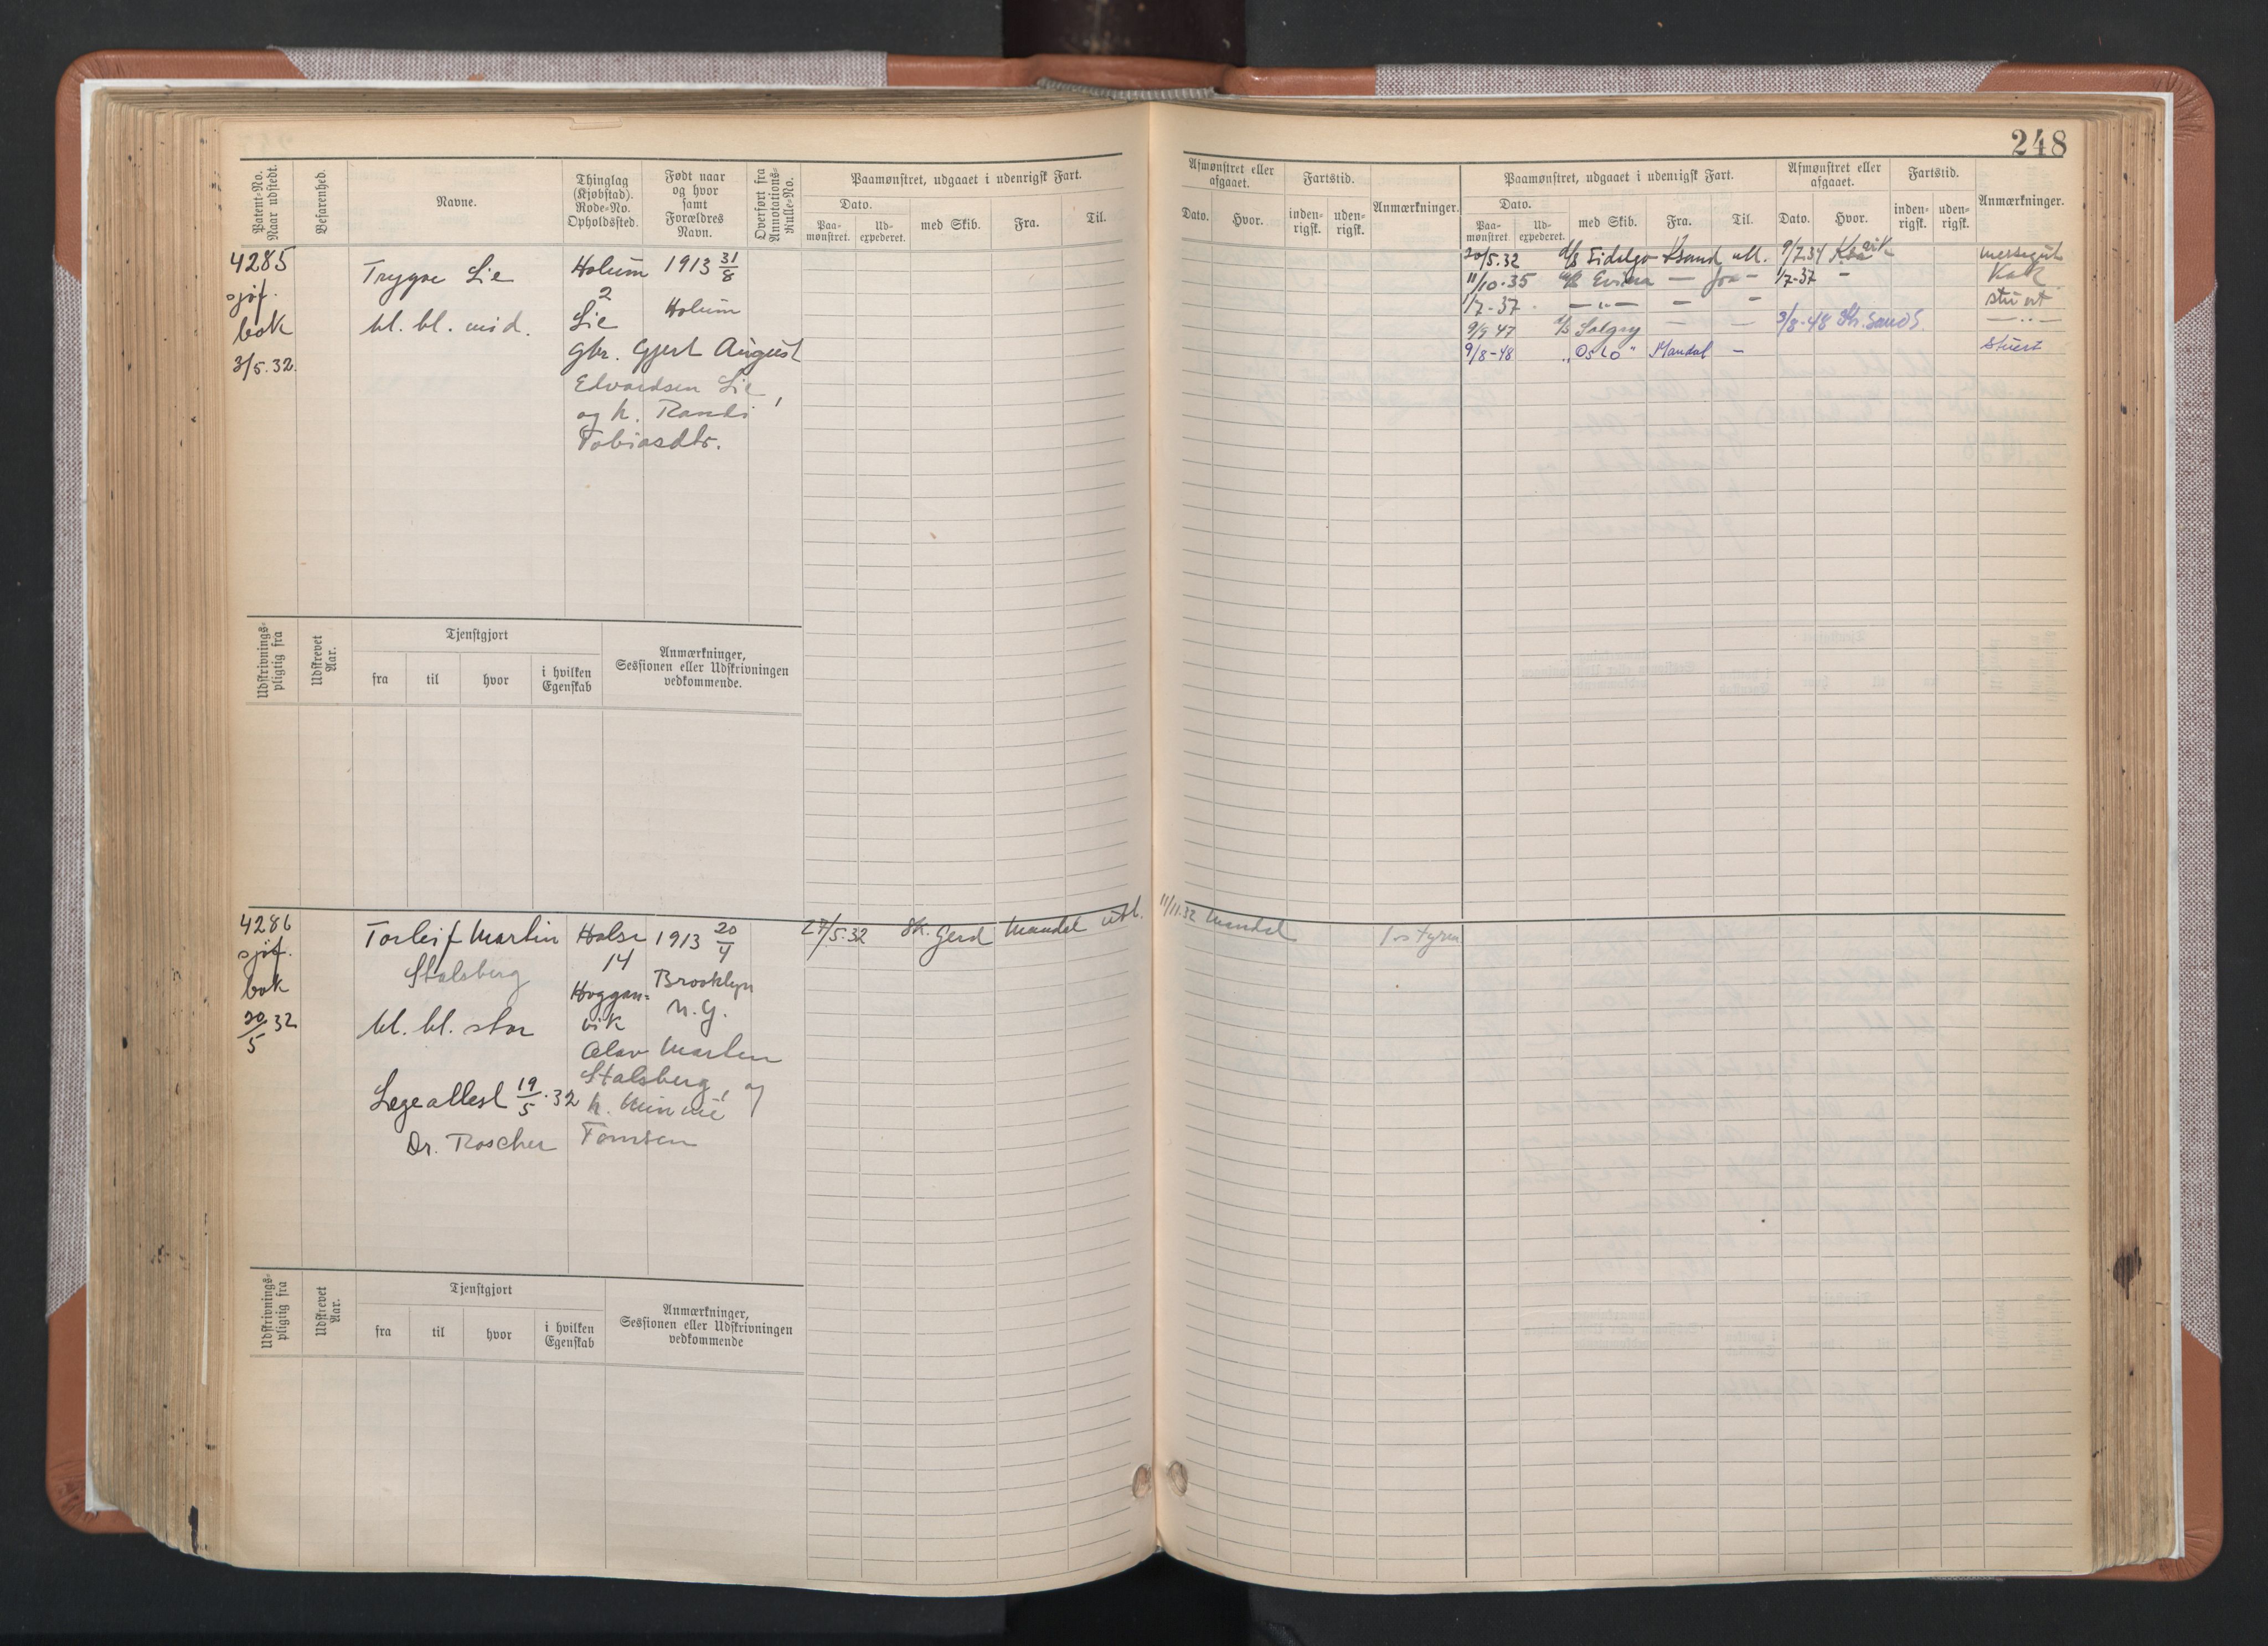 248
Patent-No. Naar udstedt.
Befarenhed.
Navne.
Thinglag (Kjøbstad). Rode-No. Opholdssted.
Født naar og hvor samt Forældres Navn.
Overført fra Annotations-Rulle-No.
Paamønstret, udgaaet i udenrigsk Fart.
Dato.
Paa-mønstret.
Ud-expederet.
med Skib.
Fra.
Til.
Afmønstret eller afgaaet.
Dato.
Hvor.
Fartstid.
inden-rigsk.
uden-rigsk.
Anmærkninger.
Paamønstret, udgaaet i udenrigsk Fart.
Dato.
Paa-mønstret
Ud-expederet.
med Skib.
Fra.
Til.
Afmønstret eller afgaaet.
Dato.
Hvor.
Fartstid.
inden-rigsk.
uden-rigsk.
Anmærkninger.
4285
sjøf.
bok
3/5.32.
Trygve Lie
bl. bl. mid.
Holum
2
Lie
1913 31/8
Holum
Gbr. Gjert August
Edvardsen Lie,
og h. Randi
Tobiasdtr.
20/5.32 d/s Fidelgo Ksand utl. 9/7.34
11/10.35 — fra - 1/7-37 - Kok
1/7-37 - — „ — — - stuert
9/9 47 t/s Solgry — — 3/8-48 Kr.sands — „ —
9/8-48 "Oslo" Mandal - stuert
Udskrivnings-pligtig fra
Udskrevet Aar.
Tjenstgjort
fra
til
hvor
i hvilken Egenskab
Anmærkninger, Sessionen eller Udskrivningen vedkommende.
4286
sjøf.
bok
20/5 32
Torleif Martin
Stalsberg
bl. bl. stor
Legeattest 19/5.32
Dr. Roscher
Halse
14
Hoggan-
vik
1913 20/4
Brooklyn
N.Y.
Olav Martin
Stalsberg, og
h. Minnie
Tomsen
27/5.32 Sk. Gerd Mandal utl. 11/11.32 Mandal
Udskrivnings-pligtig fra
Udskrevet Aar.
Tjenstgjort
fra
til
hvor
i hvilken Egenskab
Anmærkninger, Sessionen eller Udskrivningen vedkommende